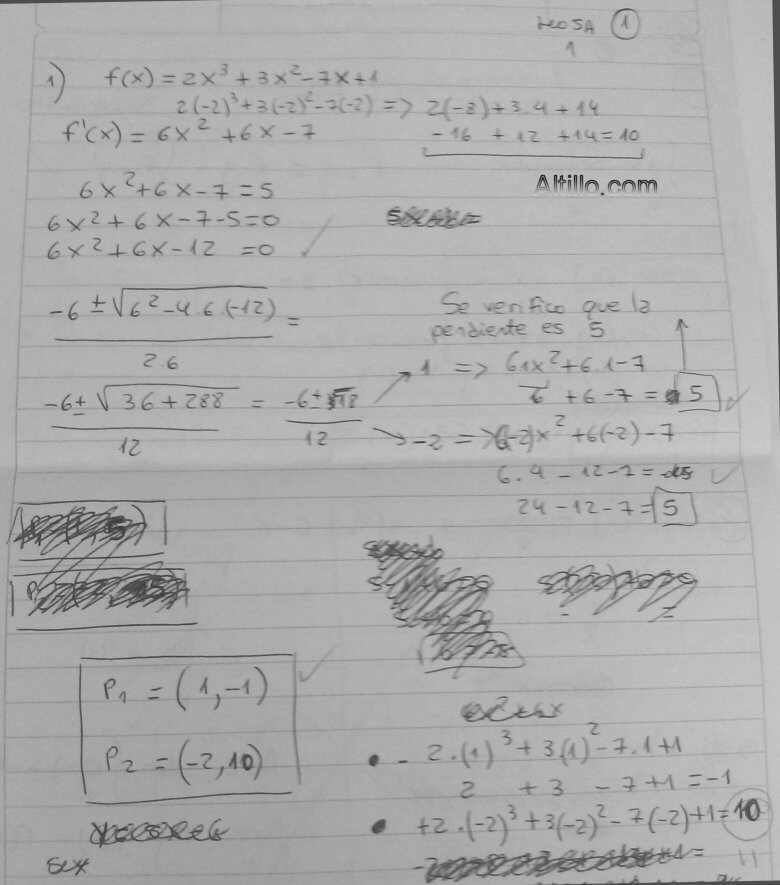 1
1
1) f(x) = 2x³ + 3x² - 7x + 1
2(-2)³ + 3(-2)² - 7(-2) => 2(-8) + 3.4 + 14
f'(x) = 6x² + 6x - 7
-16 + 12 + 14 = 10
Altillo.com
6x² + 6x - 7 = 5
6x² + 6x - 7 - 5 = 0
6x² + 6x - 12 = 0
-6 ± √6² - 4.6.(-12) =
2.6
Se verifico que la
pendiente es 5
-6 ± √36 + 288 = -6 ± 18
12 12
1 => 6.1x² + 6.1 - 7
6 + 6 - 7 = 5
-2 => 6(-2)x² + 6(-2) - 7
6.4 - 12 - 7 =
24 - 12 - 7 = 5
P₁ = (1, -1)
P₂ = (-2, 10)
• - 2.(1)³ + 3(1)² - 7.1 + 1
2 + 3 - 7 + 1 = -1
• +2.(-2)³ + 3(-2)² - 7(-2) + 1 = 10